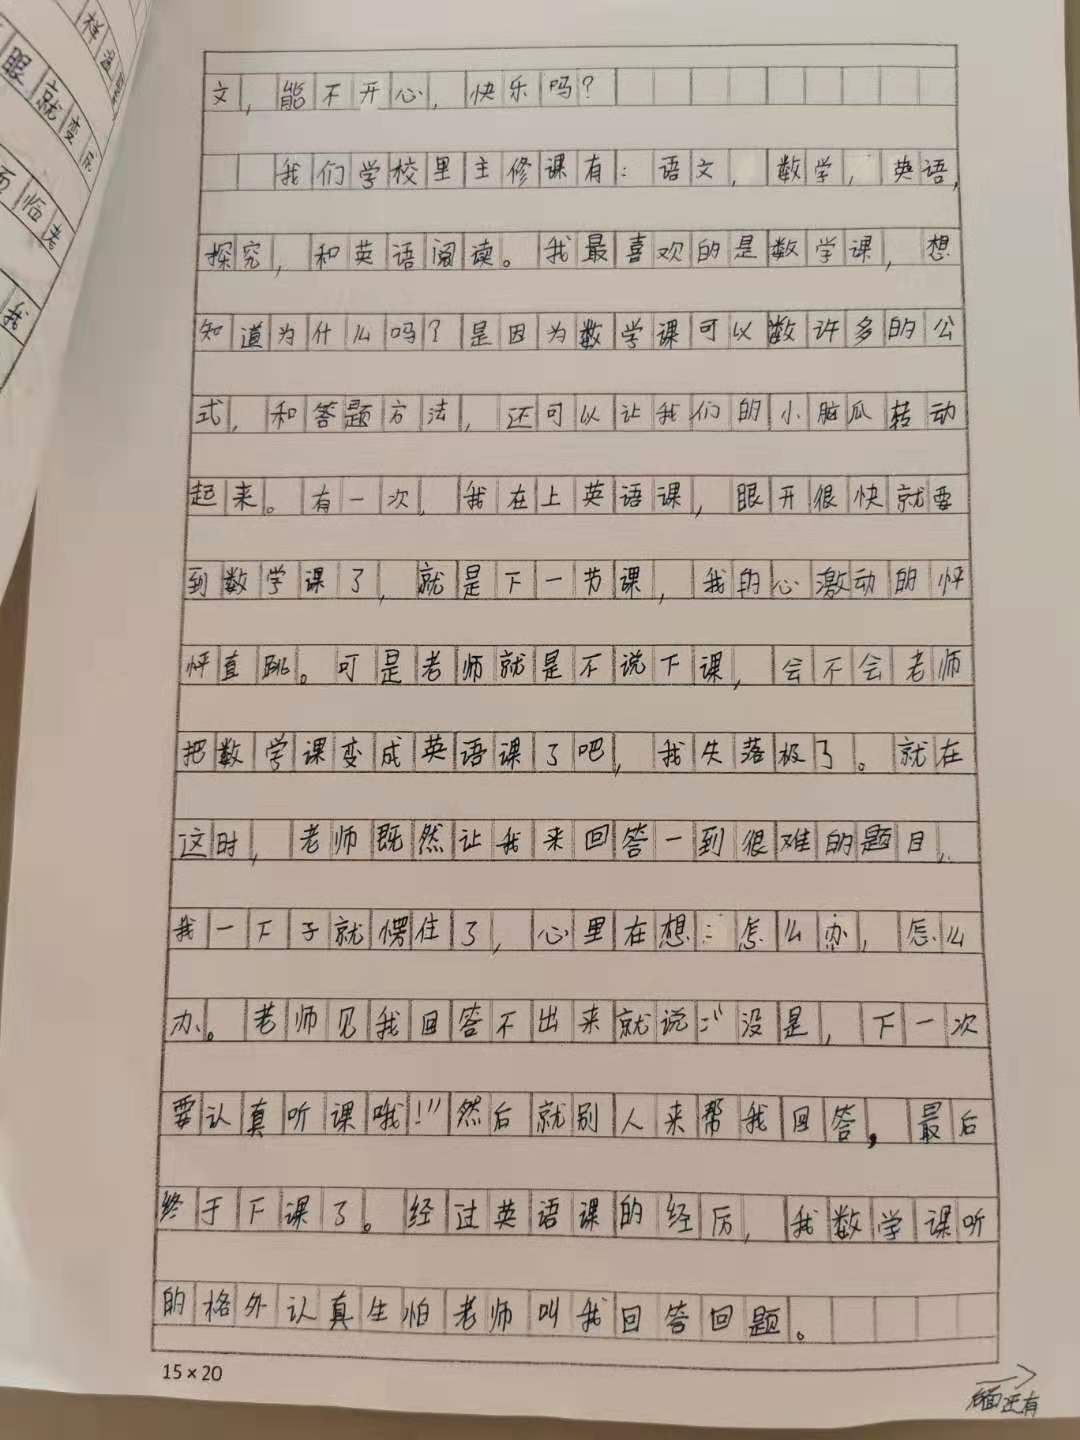 样温
眼就变成
面临考
我
文，能不开心，快乐吗？
我们学校里主修课有：语文，数学，英语，
探究，和英语阅读。我最喜欢的是数学课，想
知道为什么吗？是因为数学课可以数许多的公
式，和答题方法，还可以让我们的小脑瓜转动
起来。有一次，我在上英语课，眼开很快就要
到数学课了，就是下一节课，我的心激动的怦
怦直跳。可是老师就是不说下课，会不会老师
把数学课变成英语课了吧，我失落极了。就在
这时，老师既然让我来回答一到很难的题目，
我一下子就愣住了，心里在想：怎么办，怎么
办。老师见我回答不出来就说：“没是，下一次
要认真听课哦！”然后就别人来帮我回答，最后
终于下课了。经过英语课的经历，我数学课听
的格外认真生怕老师叫我回答回题。
15×20
后面还有